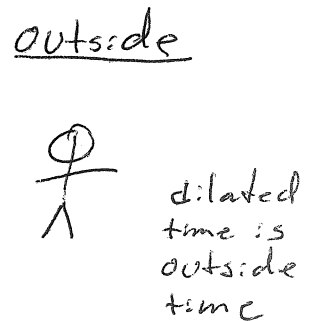 outside
dilated
time is
outside
time